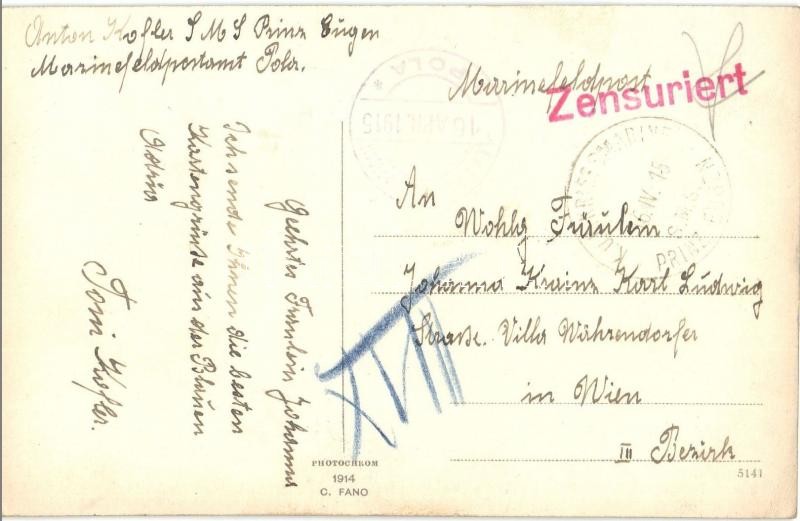 Anton Kofler S M S Prinz Eugen
Marinefeldpostamt Pola.
Marinefeldpost
Zensuriert
POLA *
16 APR. 1915
K.U.K. KRIEGSMARINE
IV. 15
S.M.S.
PRINZ EUGEN
An
Wohlg Fräulein
Johanna Krainz Karl Ludwig
Straße. Villa Währendorfer
in Wien
III Bezirk
XVIII
Geehrtes Fräulein Johanna
Ich sende Ihnen die besten
Kartengrüße aus der Blauen
Adria
Toni Kofler.
PHOTOCHROM
1914
C. FANO
5141